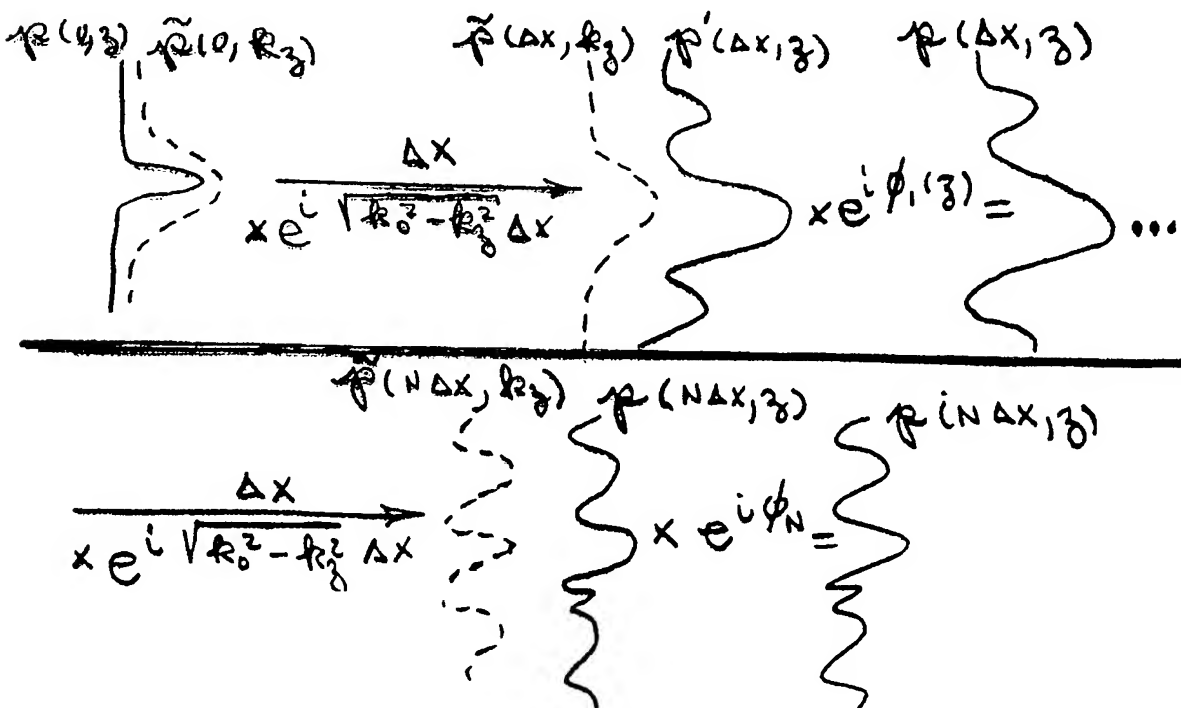 p(0,z) p̃(0, k_z) p̃(Δx, k_z) p'(Δx, z) p(Δx, z)
Δx
x e^{i √(k_0^2 - k_z^2) Δx} x e^{i φ_1(z)} = ...
p̃(NΔx, k_z) p(NΔx, z) p(NΔx, z)
Δx
x e^{i √(k_0^2 - k_z^2) Δx} x e^{i φ_N} =